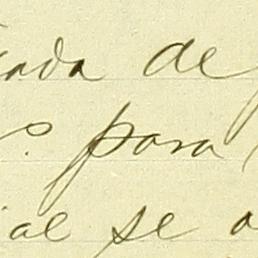 cada de
s. para
ial se a